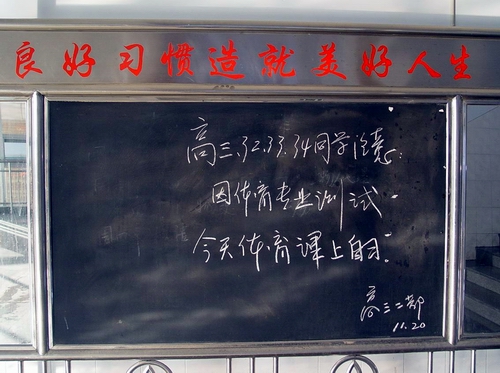 良好习惯造就美好人生
高三.32.33.34同学注意:
因体育专业测试.
今天体育课上自习.
高三二部
11.20